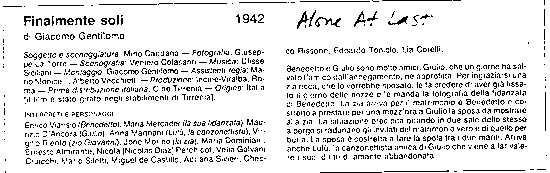 Finalmente soli 1942
di Giacomo Gentilomo
Soggetto e sceneggiatura: Mino Caudana — Fotografia: Giusep-
pe La Torre — Scenografia: Veniero Colasanti — Musica: Ulisse
Siciliani — Montaggio: Giacomo Gentilomo — Assistenti regia: Ma-
rio Monicelli, Alberto Vecchietti — Produzione: Incine-Viralba, Ro-
ma — Prima distribuzione italiana: Cine Tirrenia — Origine: Italia
[Il film è stato girato negli stabilimenti di Tirrenia].
INTERPRETI E PERSONAGGI
Enrico Viarisio (Benedetto), Maria Mercader (la sua fidanzata), Mau-
rizio D'Ancora (Giulio), Anna Magnani (Lulù, la canzonettista), Vir-
gilio Riento (zio Giovanni), Jone Morino (la zia), Maria Dominiani,
Ernesto Almirante, Nicola
Mario Siletti, Miguel del Castillo, Adriana Sivieri, Ches-
Alone At Last
co Rissone, Edoardo Toniolo, Lia Corelli.
Benedetto e Giulio sono molto amici. Giulio, che un giorno ha sal-
vato l'amico dall'annegamento, ne approfitta. Per ingraziarsi una
zia ricca, che lo vorrebbe sposato, le fa credere di aver già fissa-
to il giorno delle nozze e le manda la fotografia della fidanzata
di Benedetto. La zia arriva per il matrimonio e Benedetto è co-
stretto a prestare per una mezz'ora a Giulio la sposa da mostrare
alla zia. La situazione precipita quando in due sale dello stesso
albergo si radunano gli invitati del matrimonio vero e di quello per
burla. La sposa è costretta a fare la spola tra i due mariti. Arriva
anche Lulù, la canzonettista amica di Giulio che viene a far vale-
re i suoi diritti di amante abbandonata.